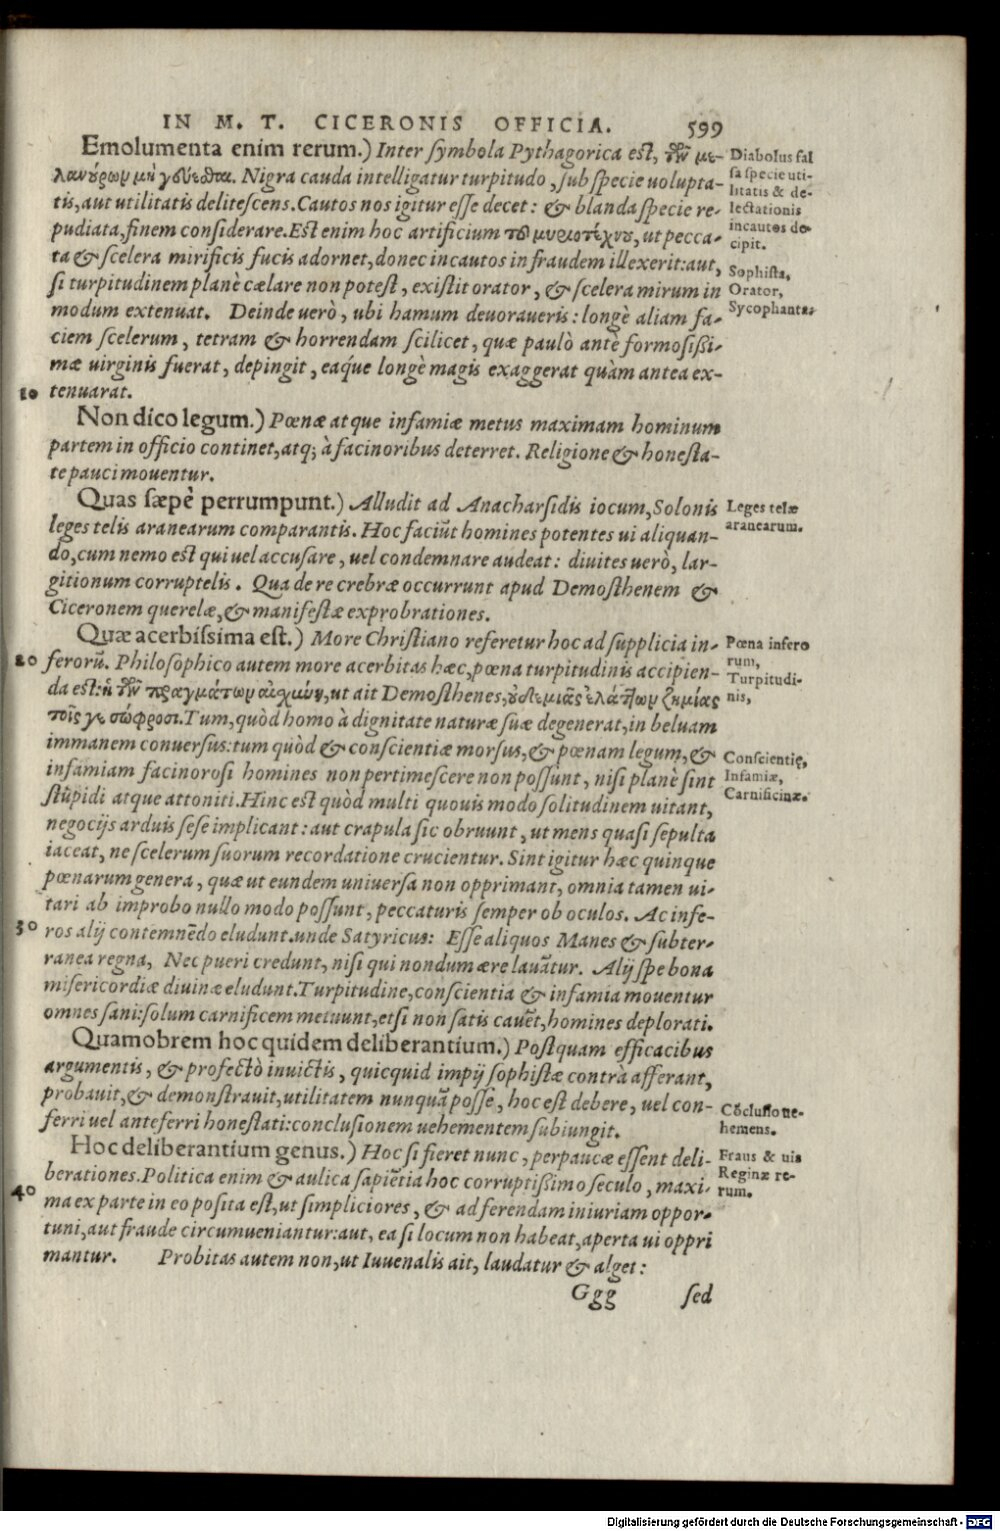 IN M. T. CICERONIS OFFICIA. 599
Emolumenta enim rerum.) Inter ſymbola Pythagorica est, τῶν με-
λανούρων μὴ γεύεσθαι. Nigra cauda intelligatur turpitudo, ſub ſpecie uolupta-
tis, aut utilitatis deliteſcens. Cautos nos igitur eſſe decet: & blanda ſpecie re-
pudiata, finem conſiderare. Est enim hoc artificium τοῦ μυριοτέχνου, ut pecca-
ta & ſcelera mirificis fucis adornet, donec incautos in fraudem illexerit: aut,
ſi turpitudinem planè cælare non potest, exiſtit orator, & ſcelera mirum in
modum extenuat. Deinde uerò, ubi hamum deuoraueris: longè aliam fa-
ciem ſcelerum, tetram & horrendam ſcilicet, quæ paulò antè formoſißi-
mæ uirginis fuerat, depingit, eaq́ue longè magis exaggerat quàm antea ex-
10 tenuarat.
Non dico legum.) Pœnæ atque infamiæ metus maximam hominum
partem in officio continet, atq; à facinoribus deterret. Religione & honeſta-
te pauci mouentur.
Quas ſæpè perrumpunt.) Alludit ad Anacharſidis iocum, Solonis
leges telis aranearum comparantis. Hoc faciūt homines potentes ui aliquan-
do, cum nemo est qui uel accuſare, uel condemnare audeat: diuites uerò, lar-
gitionum corruptelis. Qua de re crebræ occurrunt apud Demoſthenem &
Ciceronem querelæ, & manifeſtæ exprobrationes.
Quæ acerbiſsima eſt.) More Chriſtiano referetur hoc ad ſupplicia in-
20 ferorū. Philoſophico autem more acerbitas hæc, pœna turpitudinis accipien-
da est: ἡ τῶν πραγμάτων αἰσχύνη, ut ait Demoſthenes, οὐδεμιᾶς ἐλάττων ζημίας
τοῖς γε σώφροσι. Tum, quòd homo à dignitate naturæ ſuæ degenerat, in beluam
immanem conuerſus: tum quòd & conſcientiæ morſus, & pœnam legum, &
infamiam facinoroſi homines non pertimeſcere non poſſunt, niſi planè ſint
ſtupidi atque attoniti. Hinc est quòd multi quouis modo ſolitudinem uitant,
negocijs arduis ſeſe implicant: aut crapula ſic obruunt, ut mens quaſi ſepulta
iaceat, ne ſcelerum ſuorum recordatione crucientur. Sint igitur hæc quinque
pœnarum genera, quæ ut eundem uniuerſa non opprimant, omnia tamen ui-
tari ab improbo nullo modo poſſunt, peccaturis ſemper ob oculos. Ac infe-
30 ros alij contemnēdo eludunt. unde Satyricus: Eſſe aliquos Manes & ſubter-
ranea regna, Nec pueri credunt, niſi qui nondum ære lauātur. Alij ſpe bona
miſericordiæ diuinæ eludunt. Turpitudine, conſcientia & infamia mouentur
omnes ſani: ſolum carnificem metuunt, etſi non ſatis cauēt, homines deplorati.
Quamobrem hoc quidem deliberantium.) Poſtquam efficacibus
argumentis, & profectò inuictis, quicquid impij ſophiſtæ contrà afferant,
probauit, & demonſtrauit, utilitatem nunquā poſſe, hoc est debere, uel con-
ferri uel anteferri honeſtati: concluſionem uehementem ſubiungit.
Hoc deliberantium genus.) Hoc ſi fieret nunc, perpaucæ eſſent deli-
berationes. Politica enim & aulica ſapiētia hoc corruptißimo ſeculo, maxi-
40 ma ex parte in eo poſita est, ut ſimpliciores, & ad ferendam iniuriam oppor-
tuni, aut fraude circumueniantur: aut, ea ſi locum non habeat, aperta ui oppri
mantur. Probitas autem non, ut Iuuenalis ait, laudatur & alget:
Ggg ſed
Diabolus fal
ſa ſpecie uti-
litatis & de-
lectationis
incautos de-
cipit.
Sophiſta,
Orator,
Sycophanta.
Leges telæ
aranearum.
Pœna infero
rum,
Turpitudi-
nis,
Conſcientię,
Infamiæ,
Carnificinæ.
Cōcluſio ue-
hemens.
Fraus & uis
Reginæ re-
rum.
Digitalisierung gefördert durch die Deutsche Forschungsgemeinschaft - DFG